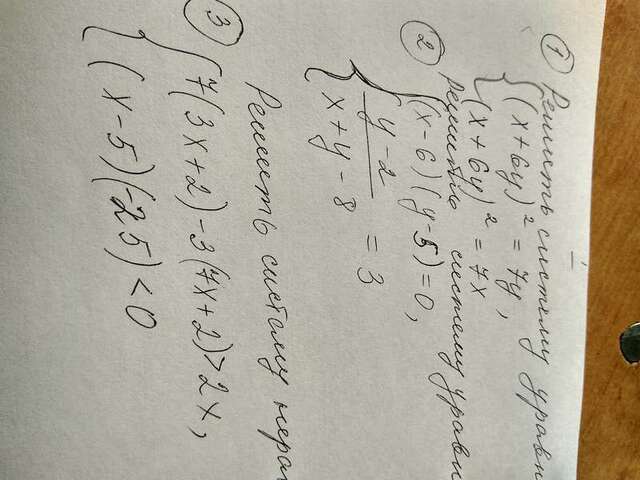 ① Решить систему уравн
{ (x + 6y)² = 7y,
(x + 6y)² = 7x
② Решить систему уравн
{ (x - 6)(y - 5) = 0,
y - 2 / x + y - 8 = 3
③ Решить систему нерав
{ 7(3x + 2) - 3(7x + 2) > 2x,
(x - 5)(-25) < 0